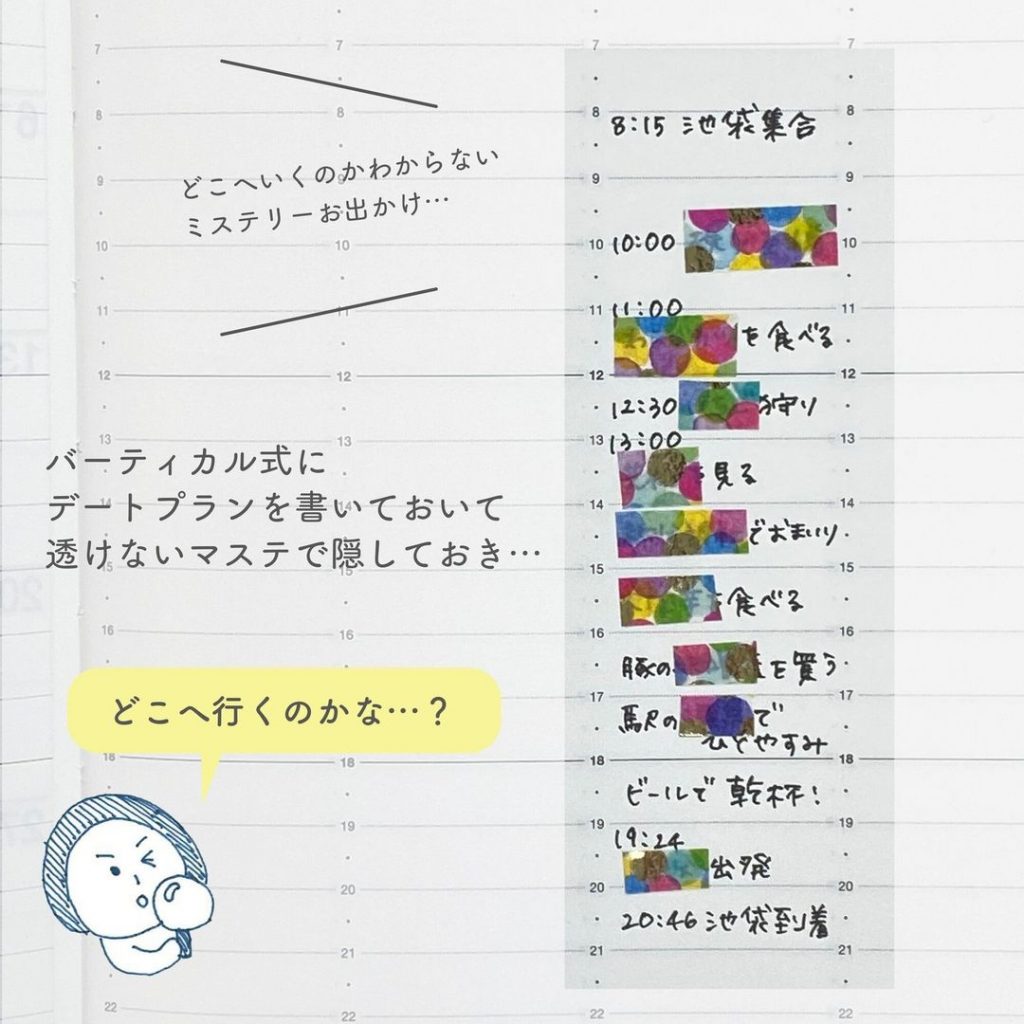 どこへいくのかわからない
ミステリーお出かけ…
バーティカル式に
デートプランを書いておいて
透けないマステで隠しておき…
どこへ行くのかな…？
7 7 7 7
8 8 8 8
8:15 池袋集合
9 9 9 9
10 10 10 10
10:00
11 11 11 11
11:00
を食べる
12 12 12 12
12:30 狩り
13 13 13 13
13:00
見る
14 14 14 14
でおまいり
15 15 15 15
を食べる
16 16 16 16
豚の を買う
17 17
駅の で
ひとやすみ
18 18 18 18
ビールで乾杯！
19 19 19
19:24
出発
20 20 20
20:46 池袋到着
21 21 21
22 22 22 22